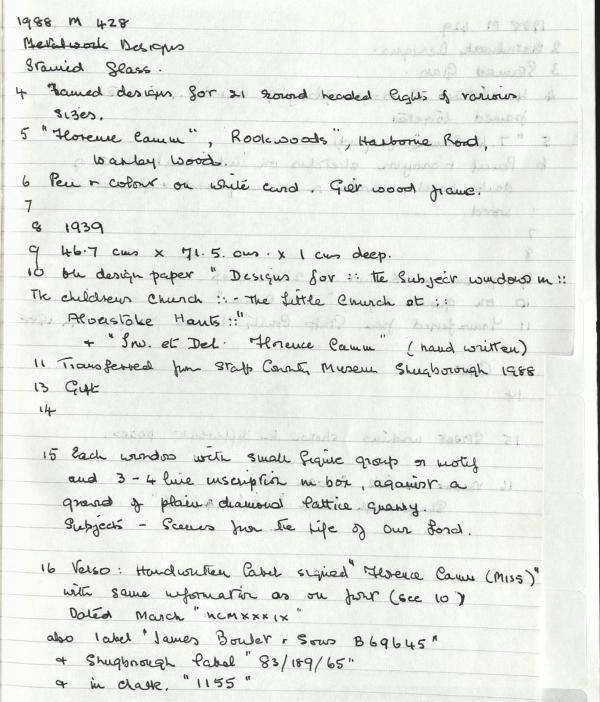 1988 M 428
Metalwork Designs
Stained Glass.
4 Framed designs for 21 round headed lights of various
sizes.
5 "Florence Camm", Rookwoods", Harborne Road,
Warley Woods.
6 Pen & colour on white card. Gilt wood frame.
7
8 1939
9 46.7 cms x 71.5. cms. x 1 cms deep.
10 On design paper "Designs for :: the Subject windows in ::
The childrens Church :: - The Little Church at ::
Alverstoke Hants ::"
+ "Inv. et Del. Florence Camm" (hand written)
11 Transferred from Staffs County Museum Shugborough 1988
13 Gift
14
15 Each window with small figure group or motif
and 3-4 line inscription in box, against a
ground of plain diamond lattice quarry.
Subjects - Scenes from the Life of Our Lord.
16 Verso: Handwritten Label signed "Florence Camm (Miss)"
with same information as on front (see 10)
Dated March "MCMXXXIX"
also label "James Boulet & Sons B69645"
& Shugborough label "83/189/65"
& in chalk. "1155"